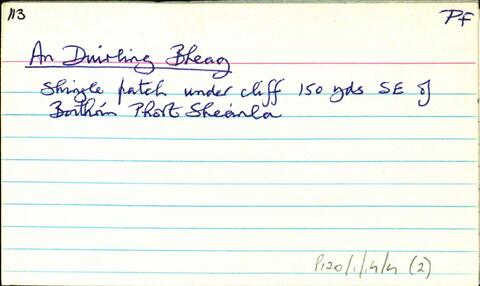 113
Pf
An Duirling Bheag
Shingle patch under cliff 150 yds SE of
Bóithrín Phort Sheánla
P120/1/4/4 (2)